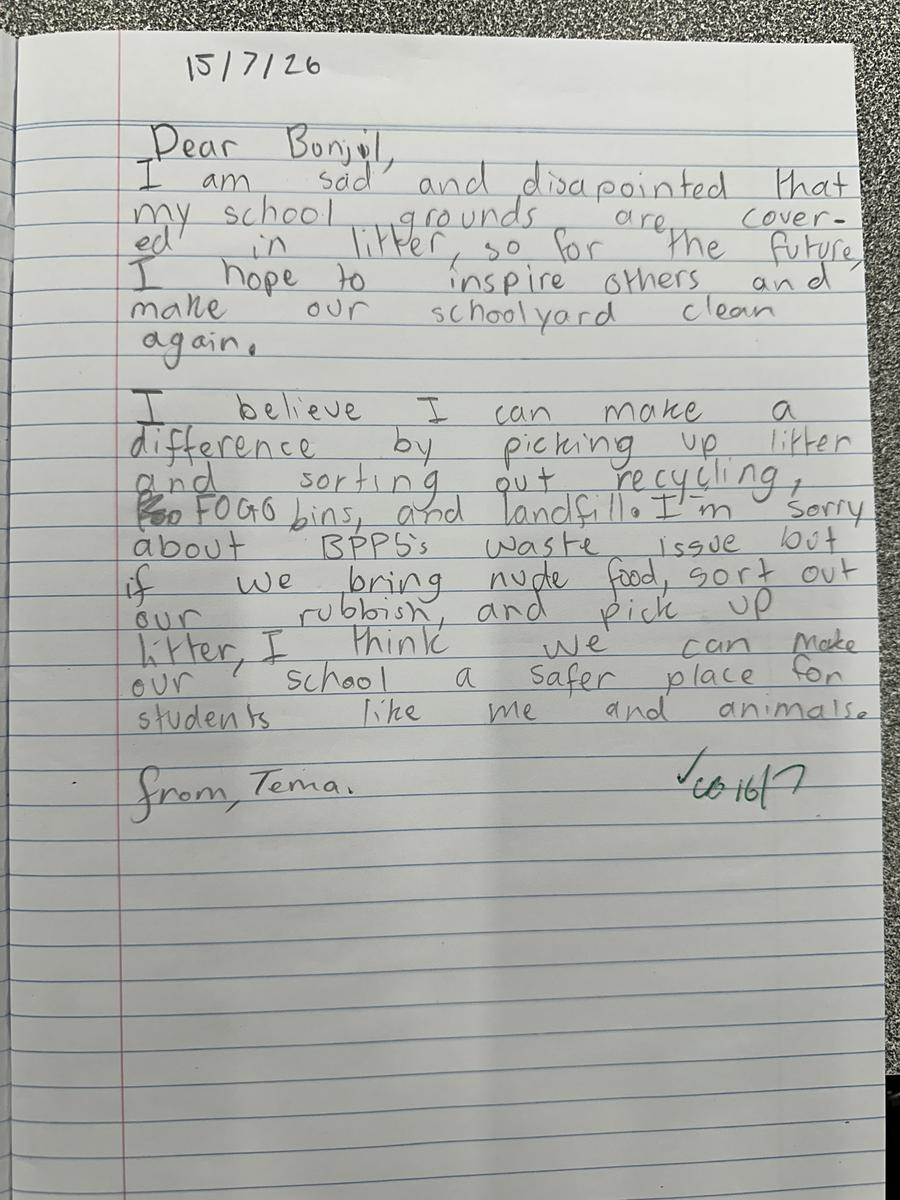 15/7/26
Dear Bonjil,
I am sad and disapointed that
my school grounds are cover-
ed in litter, so for the future,
I hope to inspire others and
make our schoolyard clean
again.
I believe I can make a
difference by picking up litter
and sorting out recycling,
FOGO bins, and landfill. I'm sorry
about BPPS's waste issue but
if we bring nude food, sort out
our rubbish, and pick up
litter, I think we can make
our school a safer place for
students like me and animals.
from, Tema.
✓ 16/7